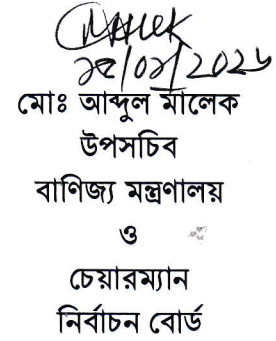 মোঃ আব্দুল মালেক
উপসচিব
বাণিজ্য মন্ত্রণালয়
ও
চেয়ারম্যান
নির্বাচন বোর্ড